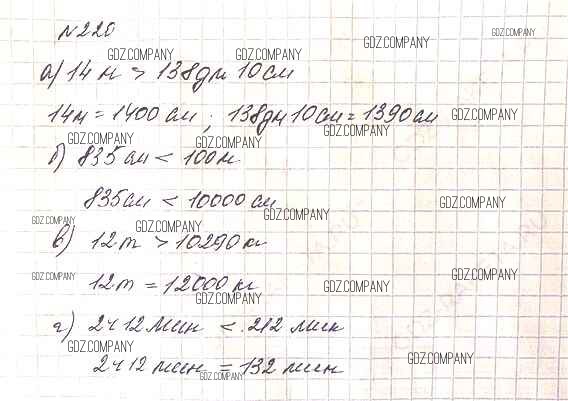 №220
GDZ.COMPANY GDZ.COMPANY GDZ.COMPANY GDZ.COMPANY
а) 14 м > 138дм 10см
14м = 1400 см ; 138дм 10см = 1390см
GDZ.COMPANY GDZ.COMPANY GDZ.COMPANY GDZ.COMPANY
б) 835 см < 100 м
835см < 10000 см
GDZ.COMPANY GDZ.COMPANY GDZ.COMPANY GDZ.COMPANY
в) 12 т > 10290 кг
GDZ.COMPANY GDZ.COMPANY GDZ.COMPANY GDZ.COMPANY
12 т = 12000 кг
г) 2ч 12 мин < 212 мин
GDZ.COMPANY GDZ.COMPANY GDZ.COMPANY
2ч 12 мин = 132 мин